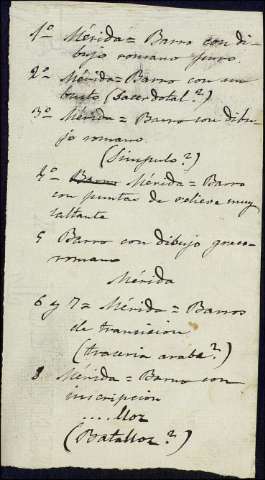 1º Mérida = Barro con di-
bujo romano puro.
2º Mérida = Barro con un
busto (Sacerdotal?)
3º Mérida = Barro con dibu-
jo romano.
(Simpulo?)
4º Barro Mérida = Barro
con puntas de relieve muy
saltante
5 Barro con dibujo greco-
romano
Mérida
6 y 7 = Mérida = Barros
de transicion
(traceria arabe?)
8 Mérida = Barro con
inscripcion
....lloz
(Batalloz?)